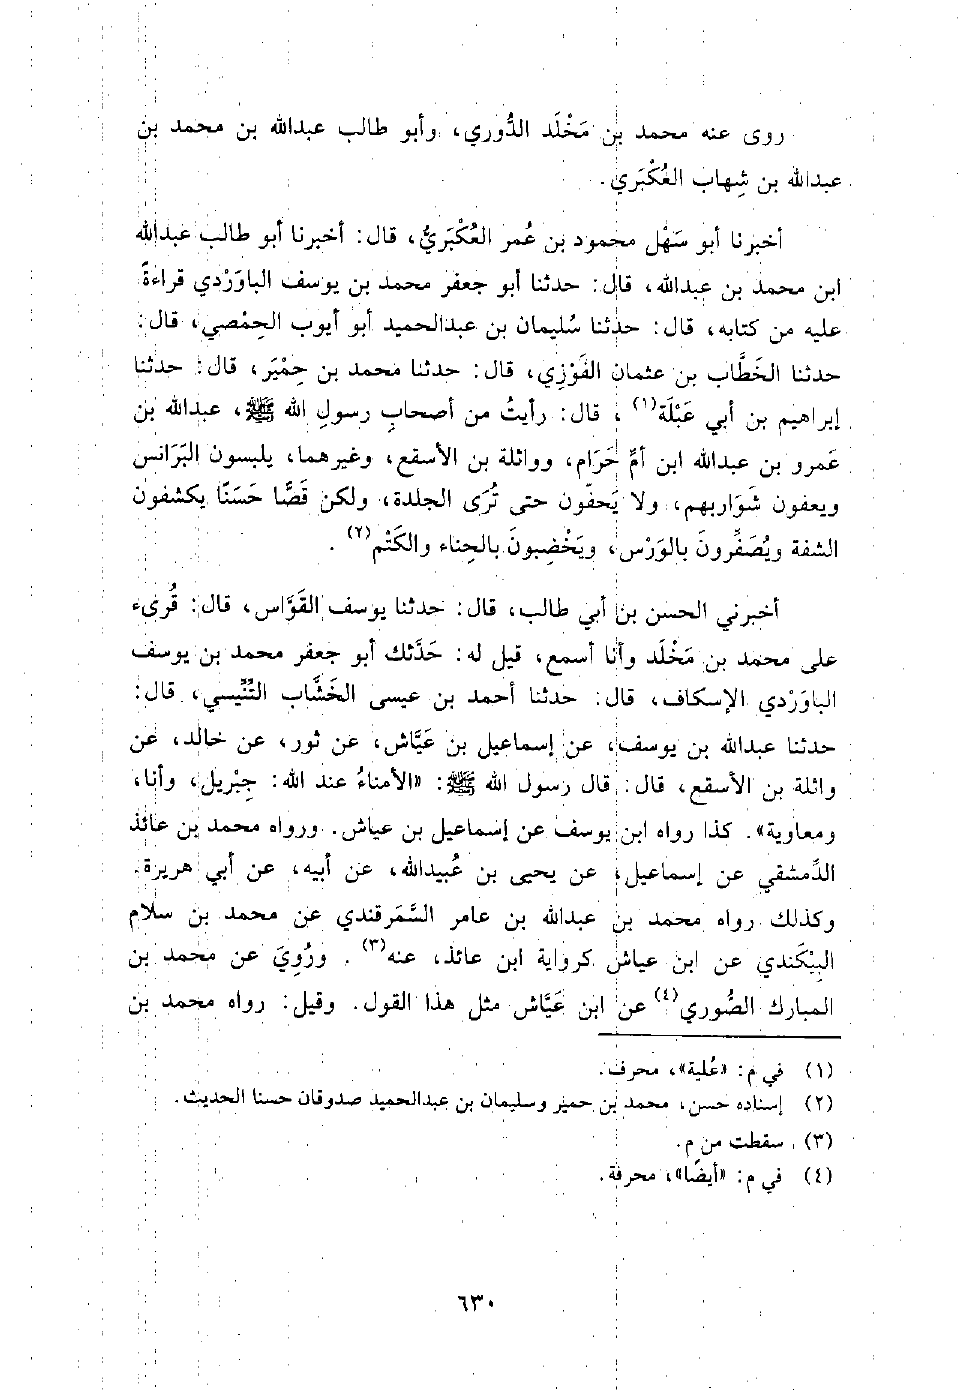 روى عنه محمد بن مَخْلَد الدُّوري، وأبو طالب عبدالله بن محمد بن
عبدالله بن شِهاب العُكْبَري.
أخبرنا أبو سَهْل محمود بن عُمر العُكْبَريُّ، قال: أخبرنا أبو طالب عبدالله
ابن محمد بن عبدالله، قال: حدثنا أبو جعفر محمد بن يوسف الباوَرْدي قراءةً
عليه من كتابه، قال: حدثنا سُليمان بن عبدالحميد أبو أيوب الحِمْصي، قال:
حدثنا الخَطَّاب بن عثمان الفَوْزي، قال: حدثنا محمد بن حِمْيَر، قال: حدثنا
إبراهيم بن أبي عَبْلَة(١)، قال: رأيتُ من أصحابِ رسولِ الله ﷺ، عبدالله بن
عَمرو بن عبدالله ابن أمِّ حَرَام، وواثلة بن الأسقع، وغيرهما، يلبسون البَرَانس
ويعفون شَوَاربهم، ولا يَحفّون حتى تُرَى الجلدة، ولكن قَصًّا حَسَنًا يكشفون
الشفة ويُصَفِّرونَ بالوَرْس، ويَخْضِبونَ بالحِناء والكَتْم(٢).
أخبرني الحسن بن أبي طالب، قال: حدثنا يوسف القَوَّاس، قال: قُرىء
على محمد بن مَخْلَد وأنا أسمع، قيل له: حَدَّثك أبو جعفر محمد بن يوسف
الباوَرْدي الإسكاف، قال: حدثنا أحمد بن عيسى الخَشَّاب التُّنِّيسي، قال:
حدثنا عبدالله بن يوسف، عن إسماعيل بن عَيَّاش، عن ثور، عن خالد، عن
واثلة بن الأسقع، قال: قال رسول الله ﷺ: «الأمناءُ عند الله: جِبْريل، وأنا،
ومعاوية». كذا رواه ابن يوسف عن إسماعيل بن عياش. ورواه محمد بن عائذ
الدِّمشقي عن إسماعيل، عن يحيى بن عُبيدالله، عن أبيه، عن أبي هريرة.
وكذلك رواه محمد بن عبدالله بن عامر السَّمَرقندي عن محمد بن سلام
البِيْكَندي عن ابن عياش كرواية ابن عائذ، عنه(٣). ورُوِيَ عن محمد بن
المبارك الصُّوري(٤) عن ابن عَيَّاش مثل هذا القول. وقيل: رواه محمد بن
(١) في م: «عُلية»، محرف.
(٢) إسناده حسن، محمد بن حمير وسليمان بن عبدالحميد صدوقان حسنا الحديث.
(٣) سقطت من م.
(٤) في م: «أيضًا»، محرفة.
٦٣٠